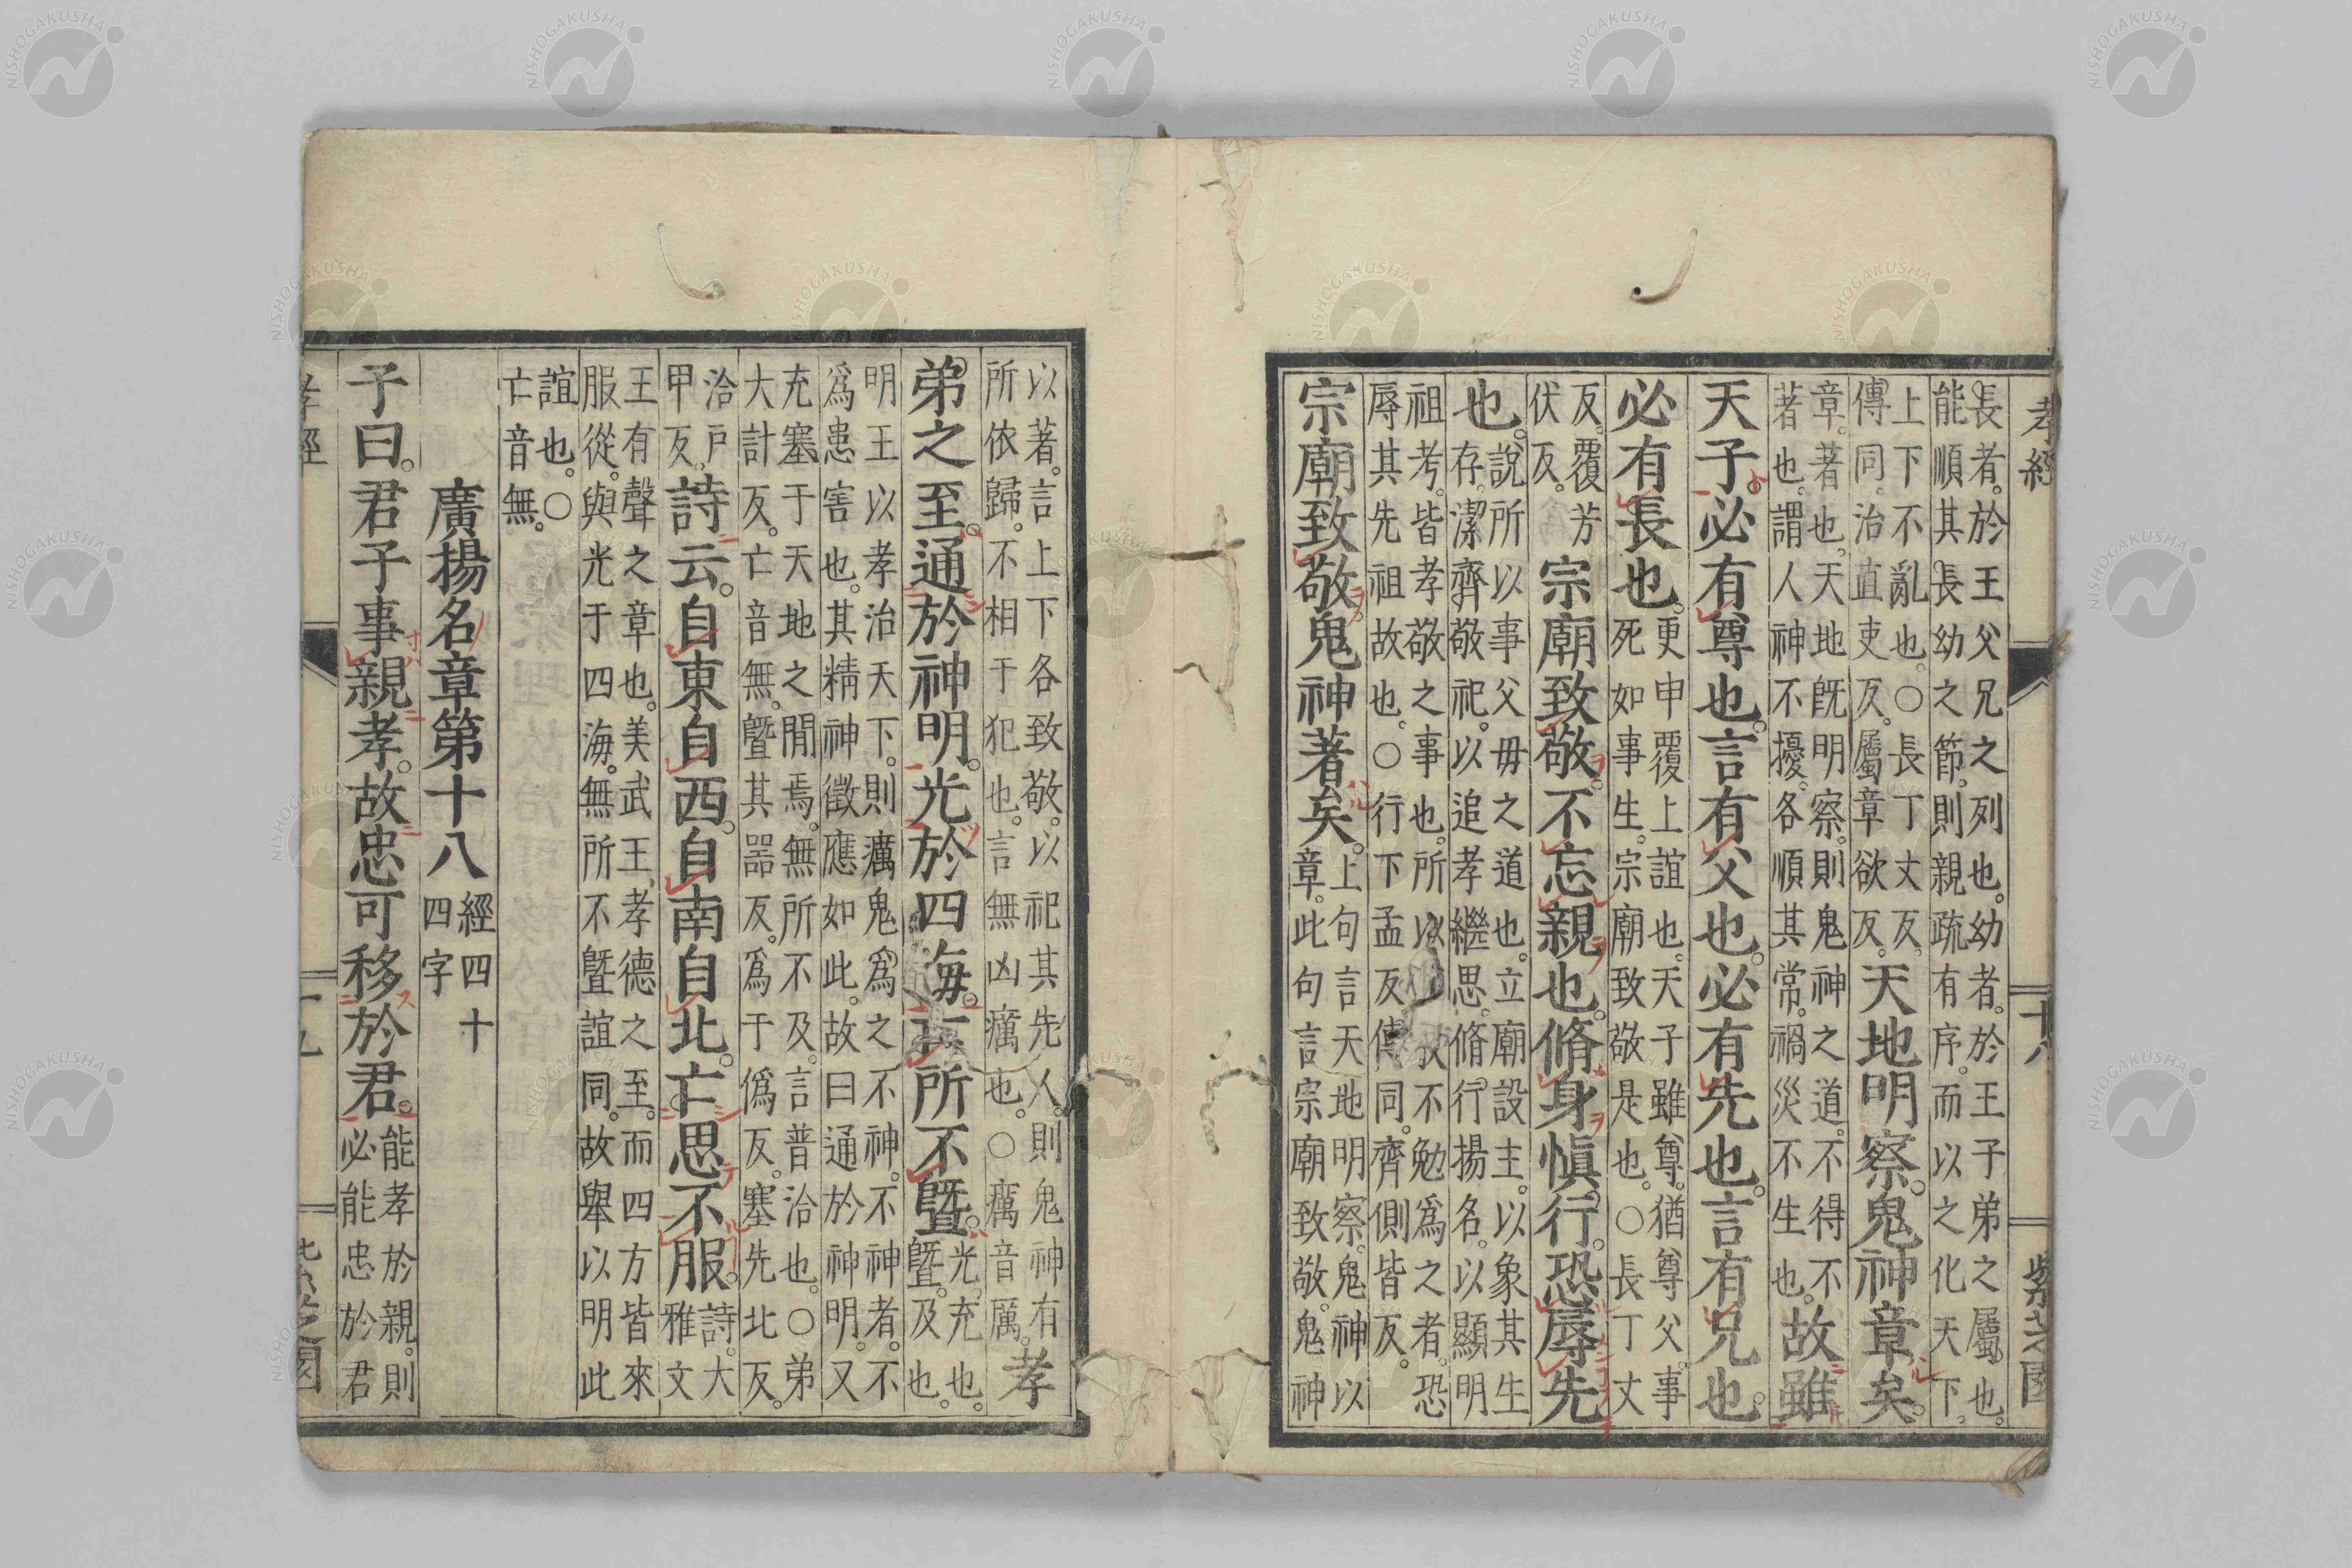 孝經　十八　紫芝園
長者。於王父兄之列也。幼者。於王子弟之屬也。
能順其長幼之節。則親疏有序。而以之化天下。
上下不亂也。○長丁丈反。
傳同。治直吏反。屬章欲反。
天地明察。鬼神章矣。
章。著也。天地旣明察。則鬼神之道。不得不
著也。謂人神不擾。各順其常。禍災不生也。
故雖
天子。必有尊也。言有父也。必有先也。言有兄也。
必有長也。
更申覆上誼也。天子雖尊。猶尊父。事
死如事生。宗廟致敬是也。○長丁丈
反。覆芳
伏反。
宗廟致敬。不忘親也。脩身愼行。恐辱先
也。
說所以事父母之道也。立廟設主。以象其生
存。潔齊敬祀。以追孝繼思。脩行揚名。以顯明
祖考。皆孝敬之事也。所以不勉爲之者。恐
辱其先祖故也。○行下孟反。傳同。齊側皆反。
宗廟致敬。鬼神著矣。
上句言天地明察。鬼神以
章。此句言宗廟致敬。鬼神
以著。言上下各致敬。以祀其先人。則鬼神有
所依歸。不相干犯也。言無凶癘也。○癘音厲。
孝
弟之至。通於神明。光於四海。亡所不曁。
光。充也。
曁。及也。
明王以孝治天下。則癘鬼爲之不神。不神者。不
爲患害也。其精神徵應如此。故曰通於神明。又
充塞于天地之閒焉。無所不及。言普洽也。○弟
大計反。亡音無。曁其噐反。爲于僞反。塞先北反。
洽戶
甲反。
詩云。自東自西。自南自北。亡思不服。
詩。大
雅文
王有聲之章也。美武王孝德之至。而四方皆來
服從。與光于四海。無所不曁誼同。故舉以明此
誼也。○
亡音無。
廣揚名章第十八
經四十
四字
子曰。君子事親孝。故忠可移於君。
能孝於親。則
必能忠於君
孝經
NISHOGAKUSHA